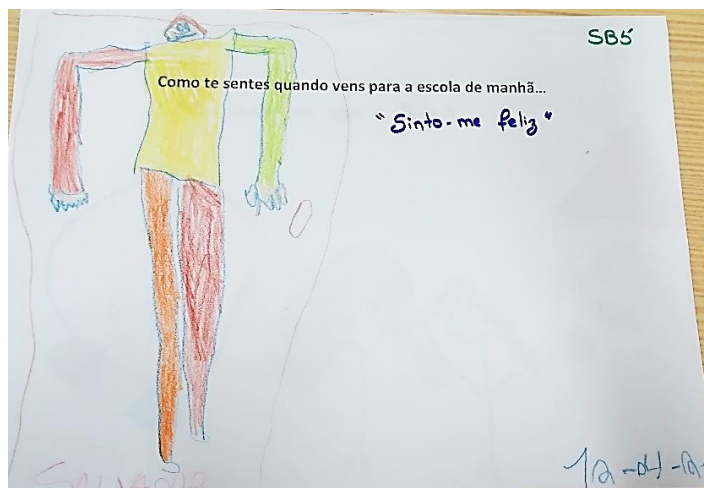 SB5
Como te sentes quando vens para a escola de manhã...
"Sinto-me feliz"
SALVADOR